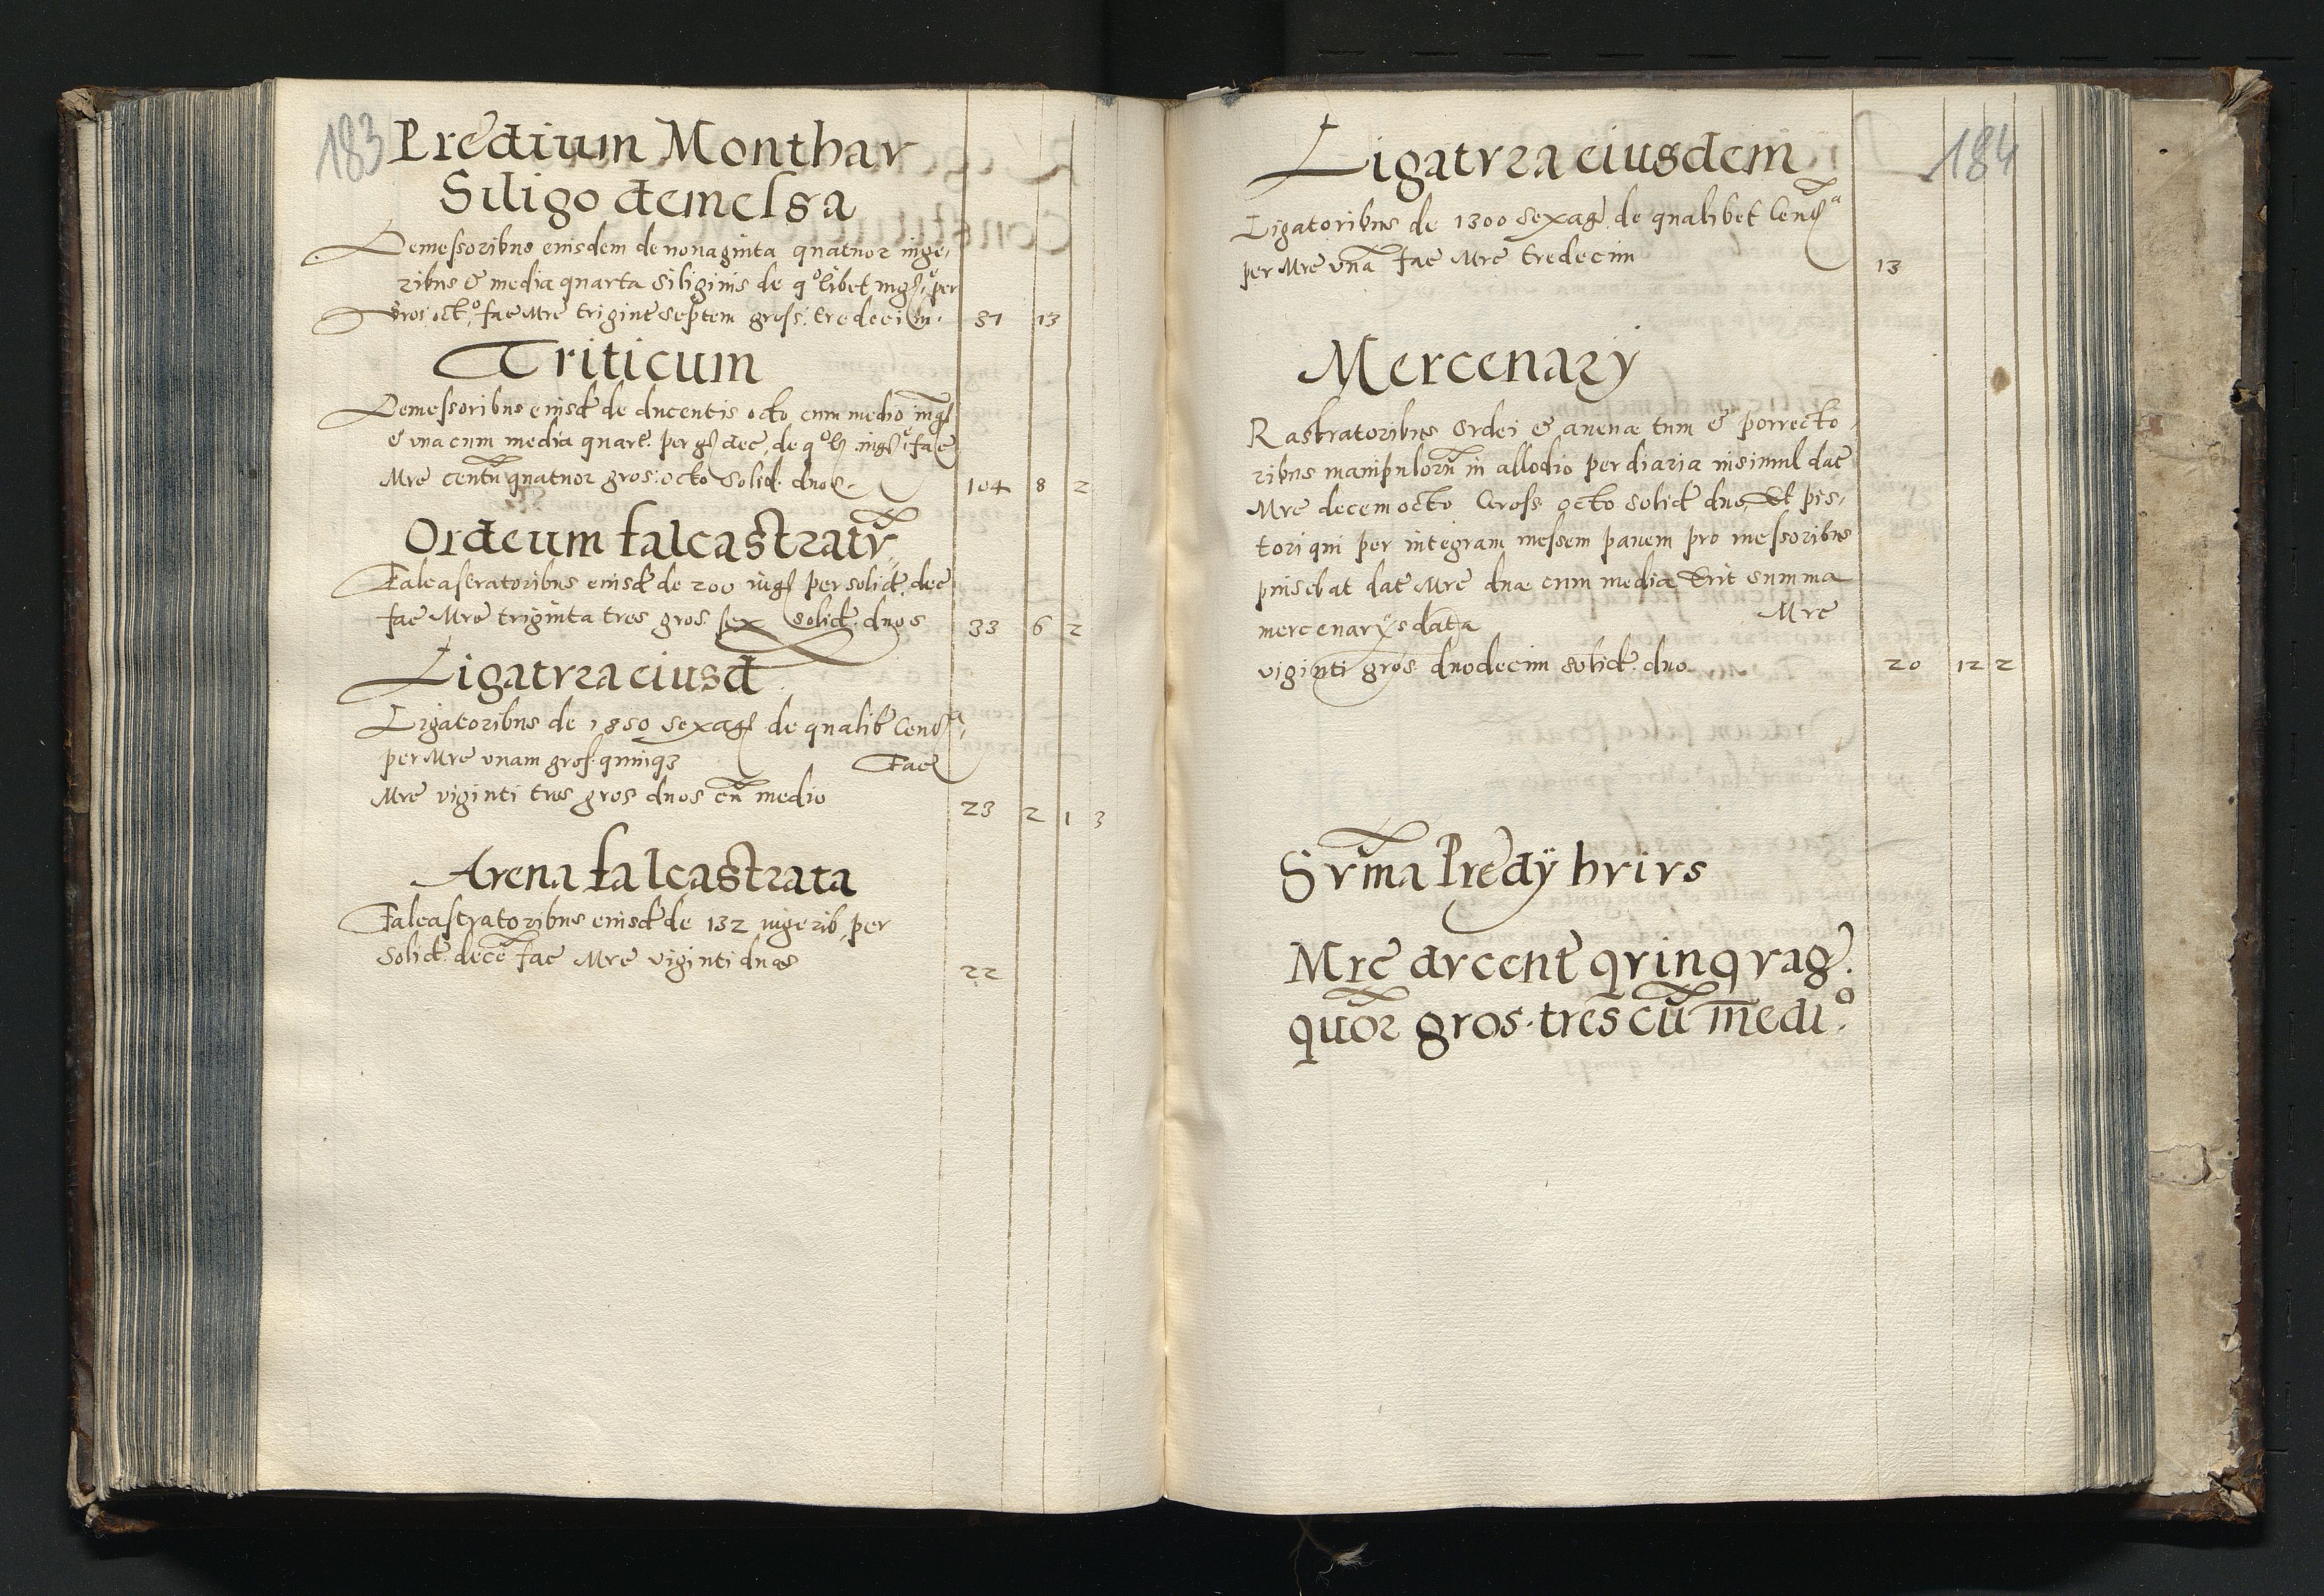 183
Predium Monthav
Siligo demessa
Demessoribus eiusdem de nonaginta quatuor iuge,
ribus & media quarta siliginis de qolibet iug: per
Gros: octo, fac Mrc trigint septem gross: tredecim. 37 13
Triticum
Demessoribus eiusd de ducentis octo cum medio iug
& una cum media quart. per g dec, de q lib iug: fac
Mrc centu quatuor gros: octo solid. duos 104 8 2
Ordeum falcastratu
Falcastratoribus eiusd de 200 iug per solid. dec
fac Mrc triginta tres gros sex solid. duos 33 6 2
Ligatura eiusd
Ligatoribus de 1850 sexag de qualib Cent
per Mrc unam gros. quinqz Fac
Mrc viginti tres gros duos cu medio 23 2 1 3
Avena falcastrata
Falcastratoribus eiusd de 132 iugerib, per
Solid. dece fac Mrc viginti duas 22
184
Ligatvra eiusdem
Ligatoribus de 1300 sexag de qualibet Cent
per Mrc una fac Mrc tredecim 13
Mercenarÿ
Rastratoribus Ordei & avenae tum & porrecto,
ribus manipuloru in allodio per diaria insimul dat
Mrc decem octo Gross octo solid duo, Et pis,
tori qui per integram messem panem pro messoribus
pinsebat dat Mrc duae cum media Erit summa
mercenarÿs data Mrc
viginti gros duodecim solid. duo 20 12 2
Svma Predÿ hvivs
Mrc dvcent qvinqvag.
quor gros. tres cu medio.